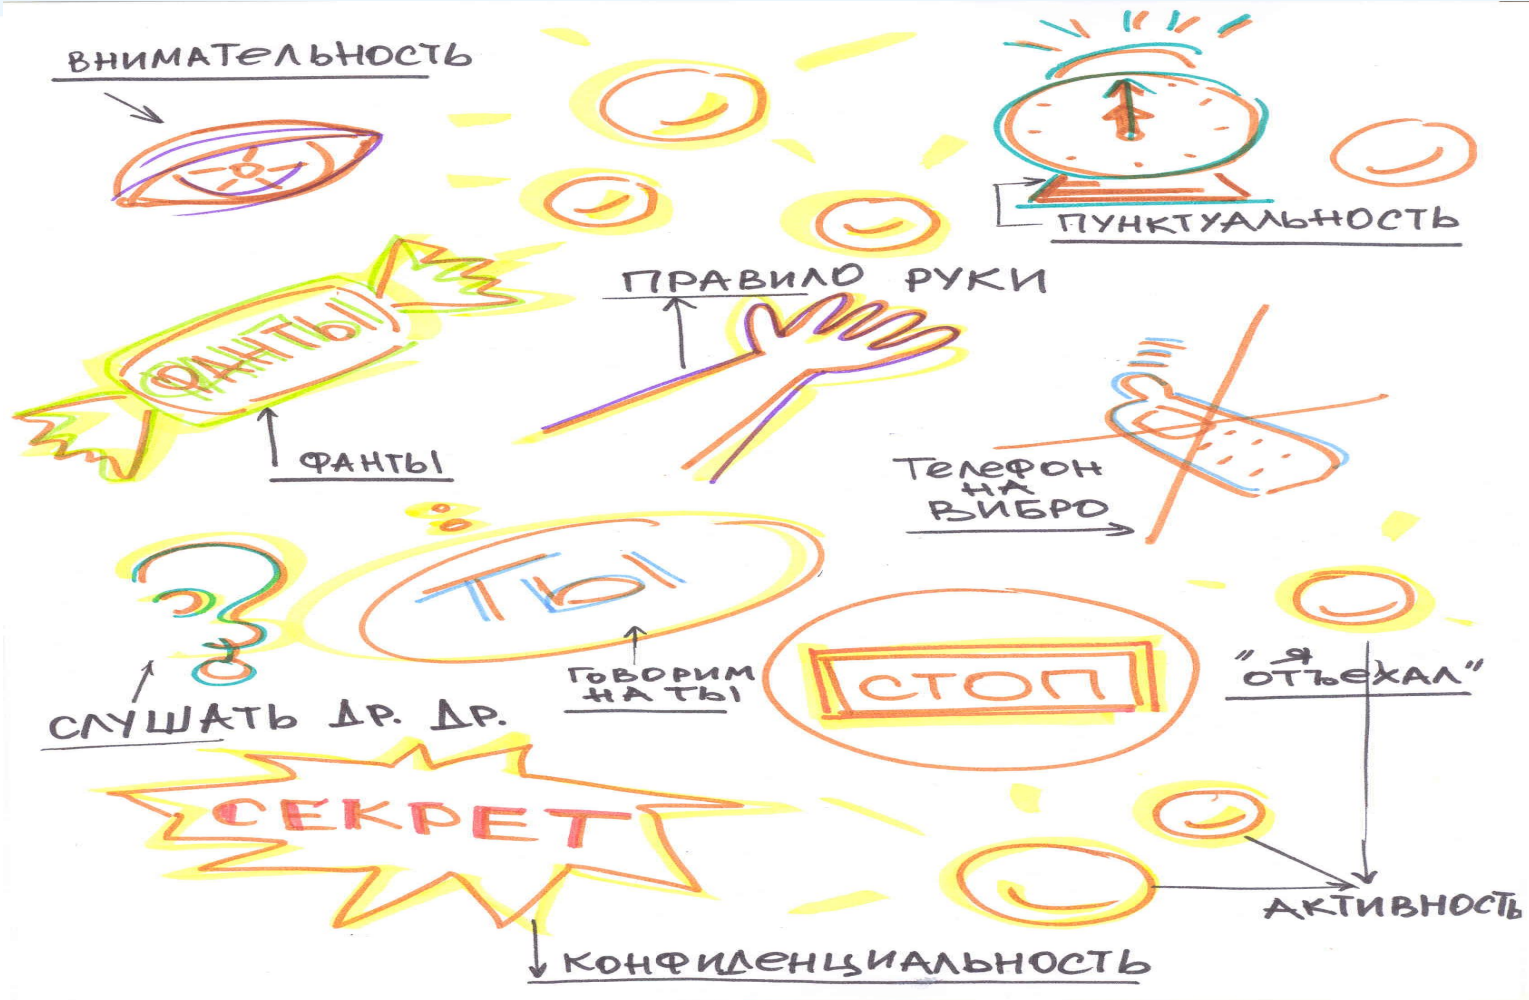 ВНИМАТЕЛЬНОСТЬ
ПУНКТУАЛЬНОСТЬ
ПРАВИЛО РУКИ
ФАНТЫ
ФАНТЫ
ТЕЛЕФОН
НА
ВИБРО
ТЫ
ГОВОРИМ
НА ТЫ
СЛУШАТЬ ДР. ДР.
СТОП
"Я
ОТЪЕХАЛ"
СЕКРЕТ
АКТИВНОСТЬ
КОНФИДЕНЦИАЛЬНОСТЬ